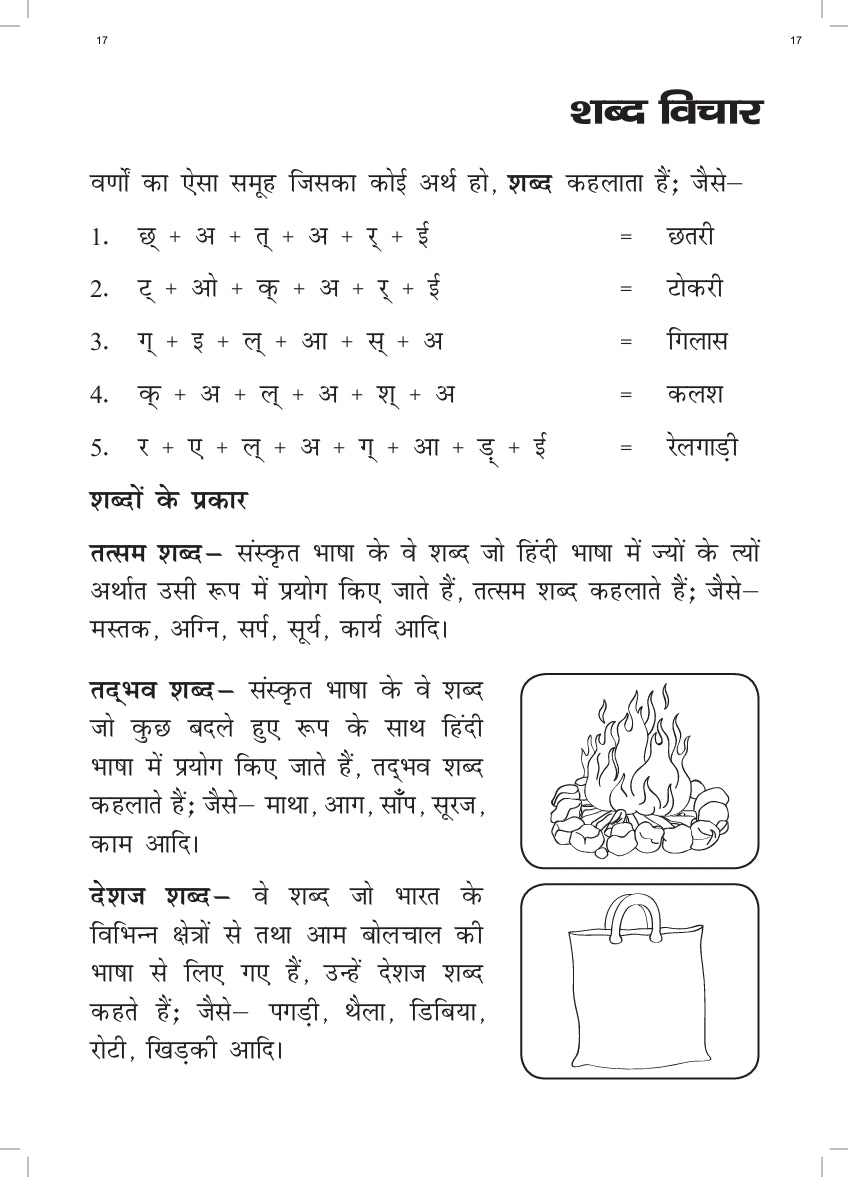 17 17
शब्द विचार
वर्णों का ऐसा समूह जिसका कोई अर्थ हो, शब्द कहलाता हैं; जैसे–
1. छ् + अ + त् + अ + र् + ई = छतरी
2. ट् + ओ + क् + अ + र् + ई = टोकरी
3. ग् + इ + ल् + आ + स् + अ = गिलास
4. क् + अ + ल् + अ + श् + अ = कलश
5. र + ए + ल् + अ + ग् + आ + ड़् + ई = रेलगाड़ी
शब्दों के प्रकार
तत्सम शब्द– संस्कृत भाषा के वे शब्द जो हिंदी भाषा में ज्यों के त्यों
अर्थात उसी रूप में प्रयोग किए जाते हैं, तत्सम शब्द कहलाते हैं; जैसे–
मस्तक, अग्नि, सर्प, सूर्य, कार्य आदि।
तद्‌भव शब्द– संस्कृत भाषा के वे शब्द
जो कुछ बदले हुए रूप के साथ हिंदी
भाषा में प्रयोग किए जाते हैं, तद्‌भव शब्द
कहलाते हैं; जैसे– माथा, आग, साँप, सूरज,
काम आदि।
देशज शब्द– वे शब्द जो भारत के
विभिन्न क्षेत्रों से तथा आम बोलचाल की
भाषा से लिए गए हैं, उन्हें देशज शब्द
कहते हैं; जैसे– पगड़ी, थैला, डिबिया,
रोटी, खिड़की आदि।